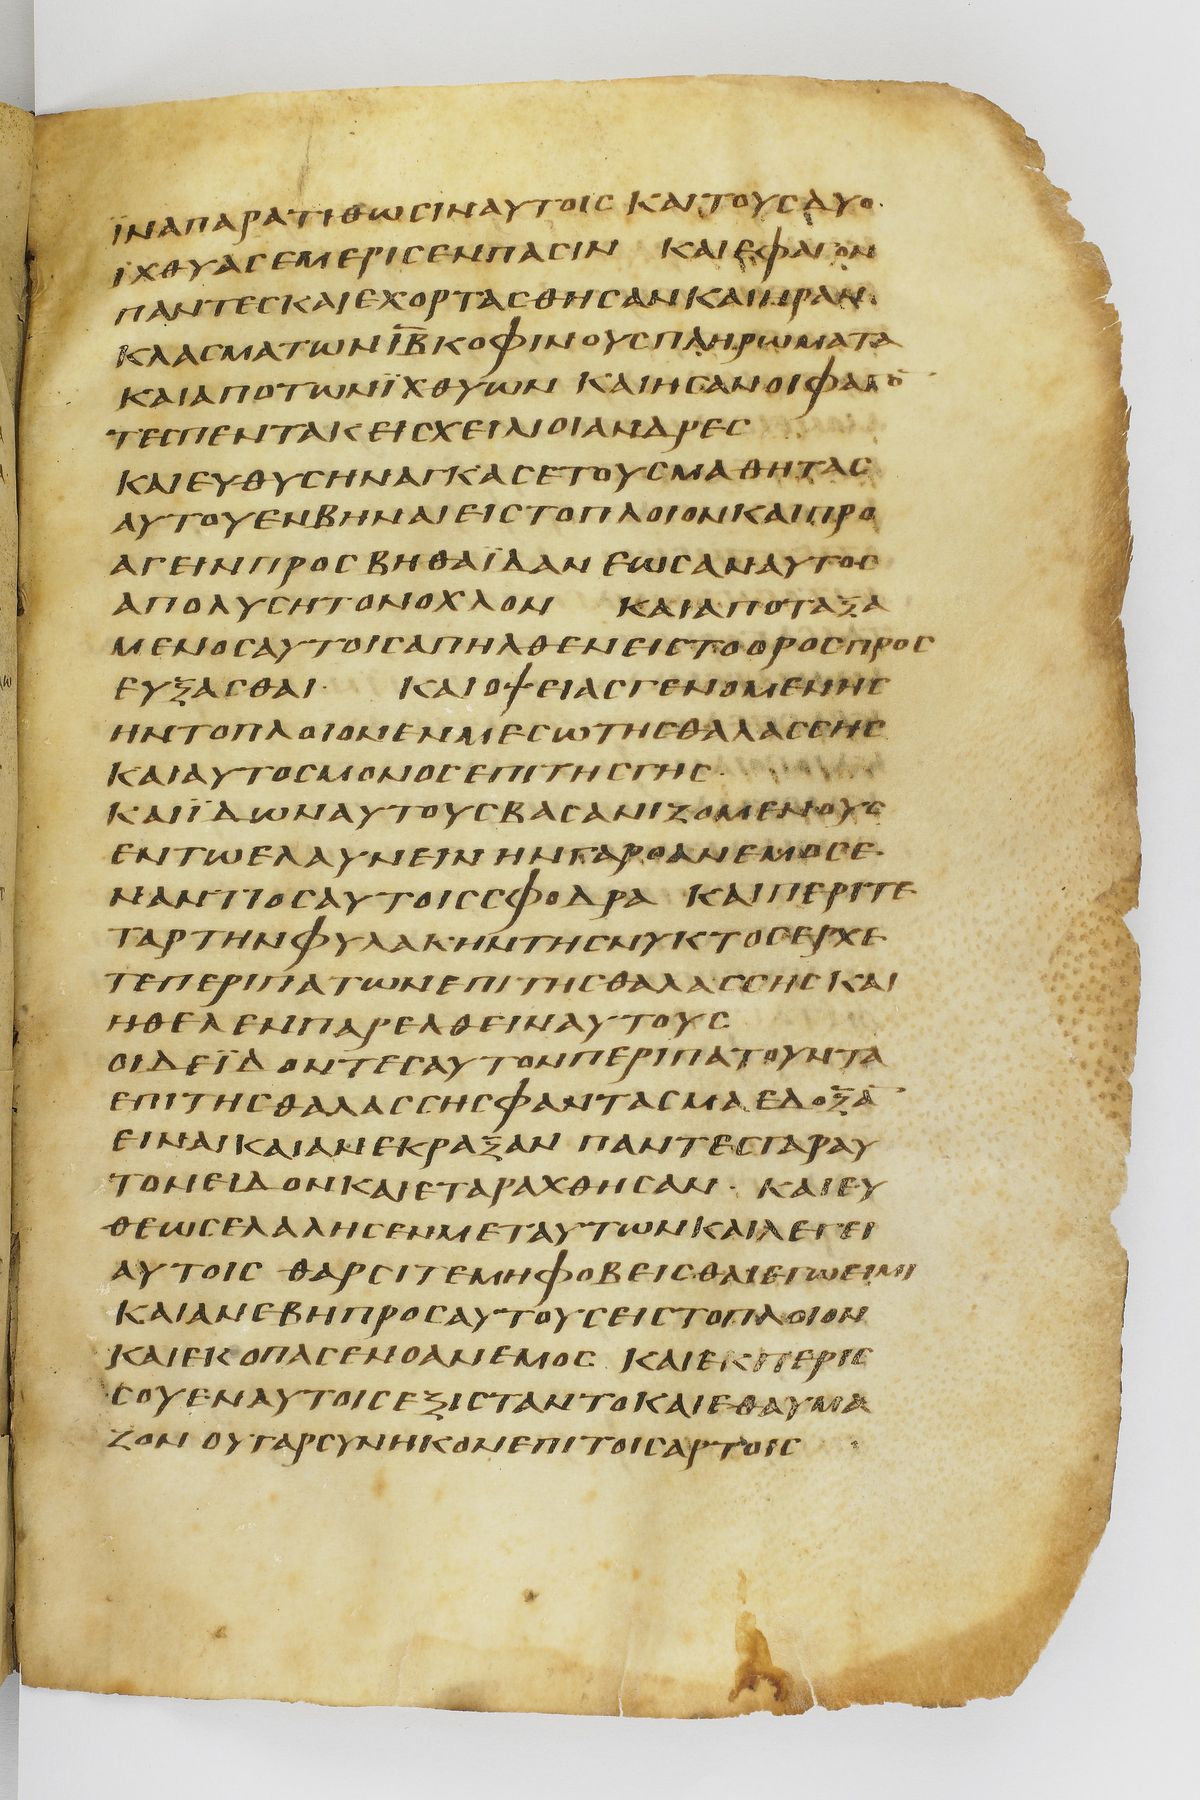 ΪΝΑΠΑΡΑΤΙΘΩСΙΝΑΥΤΟΙС ΚΑΙΤΟΥСΔΥΟ
ΙΧΘΥΑСΕΜΕΡΙСΕΝΠΑСΙΝ ΚΑΙΕΦΑΓΟΝ
ΠΑΝΤΕСΚΑΙΕΧΟΡΤΑСΘΗСΑΝΚΑΙΗΡΑΝ
ΚΛΑСΜΑΤΩΝΙ̅Β̅ΚΟΦΙΝΟΥСΠΛΗΡΩΜΑΤΑ
ΚΑΙΑΠΟΤΩΝΪΧΘΥΩΝ ΚΑΙΗСΑΝΟΙΦΑΓΟ̅
ΤΕСΠΕΝΤΑΚΕΙСΧΕΙΛΙΟΙΑΝΔΡΕС
ΚΑΙΕΥΘΥСΗΝΑΓΚΑСΕΤΟΥСΜΑΘΗΤΑС
ΑΥΤΟΥΕΝΒΗΝΑΙΕΙСΤΟΠΛΟΙΟΝΚΑΙΠΡΟ
ΑΓΕΙΝΠΡΟСΒΗΘΑΪΔΑΝ ΕΩСΑΝΑΥΤΟС
ΑΠΟΛΥСΗΤΟΝΟΧΛΟΝ ΚΑΙΑΠΟΤΑΞΑ
ΜΕΝΟСΑΥΤΟΙСΑΠΗΛΘΕΝΕΙСΤΟΟΡΟСΠΡΟС
ΕΥΞΑСΘΑΙ· ΚΑΙΟΨΕΙΑСΓΕΝΟΜΕΝΗС
ΗΝΤΟΠΛΟΙΟΝΕΝΜΕСΩΤΗСΘΑΛΑССΗС
ΚΑΙΑΥΤΟСΜΟΝΟСΕΠΙΤΗСΓΗС
ΚΑΙΪΔΩΝΑΥΤΟΥСΒΑСΑΝΙΖΟΜΕΝΟΥС
ΕΝΤΩΕΛΑΥΝΕΙΝ ΗΝΓΑΡΟΑΝΕΜΟСΕ
ΝΑΝΤΙΟСΑΥΤΟΙССΦΟΔΡΑ ΚΑΙΠΕΡΙΤΕ
ΤΑΡΤΗΝΦΥΛΑΚΗΝΤΗСΝΥΚΤΟСΕΡΧΕ
ΤΕΠΕΡΙΠΑΤΩΝΕΠΙΤΗСΘΑΛΑССΗСΚΑΙ
ΗΘΕΛΕΝΠΑΡΕΛΘΕΙΝΑΥΤΟΥС
ΟΙΔΕΪΔΟΝΤΕСΑΥΤΟΝΠΕΡΙΠΑΤΟΥΝΤΑ
ΕΠΙΤΗСΘΑΛΑССΗСΦΑΝΤΑСΜΑΕΔΟΞΑ̅
ΕΙΝΑΙΚΑΙΑΝΕΚΡΑΞΑΝ ΠΑΝΤΕСΓΑΡΑΥ
ΤΟΝΕΙΔΟΝΚΑΙΕΤΑΡΑΧΘΗСΑΝ· ΚΑΙΕΥ
ΘΕΩСΕΛΑΛΗСΕΝΜΕΤΑΥΤΩΝΚΑΙΛΕΓΕΙ
ΑΥΤΟΙС ΘΑΡСΙΤΕΜΗΦΟΒΕΙСΘΑΙΕΓΩΕΙΜΙ
ΚΑΙΑΝΕΒΗΠΡΟСΑΥΤΟΥСΕΙСΤΟΠΛΟΙΟΝ
ΚΑΙΕΚΟΠΑСΕΝΟΑΝΕΜΟС ΚΑΙΕΚΠΕΡΙС
СΟΥΕΝΑΥΤΟΙСΕΞΙСΤΑΝΤΟΚΑΙΕΘΑΥΜΑ
ΖΟΝ ΟΥΓΑΡСΥΝΗΚΟΝΕΠΙΤΟΙСΑΡΤΟΙС